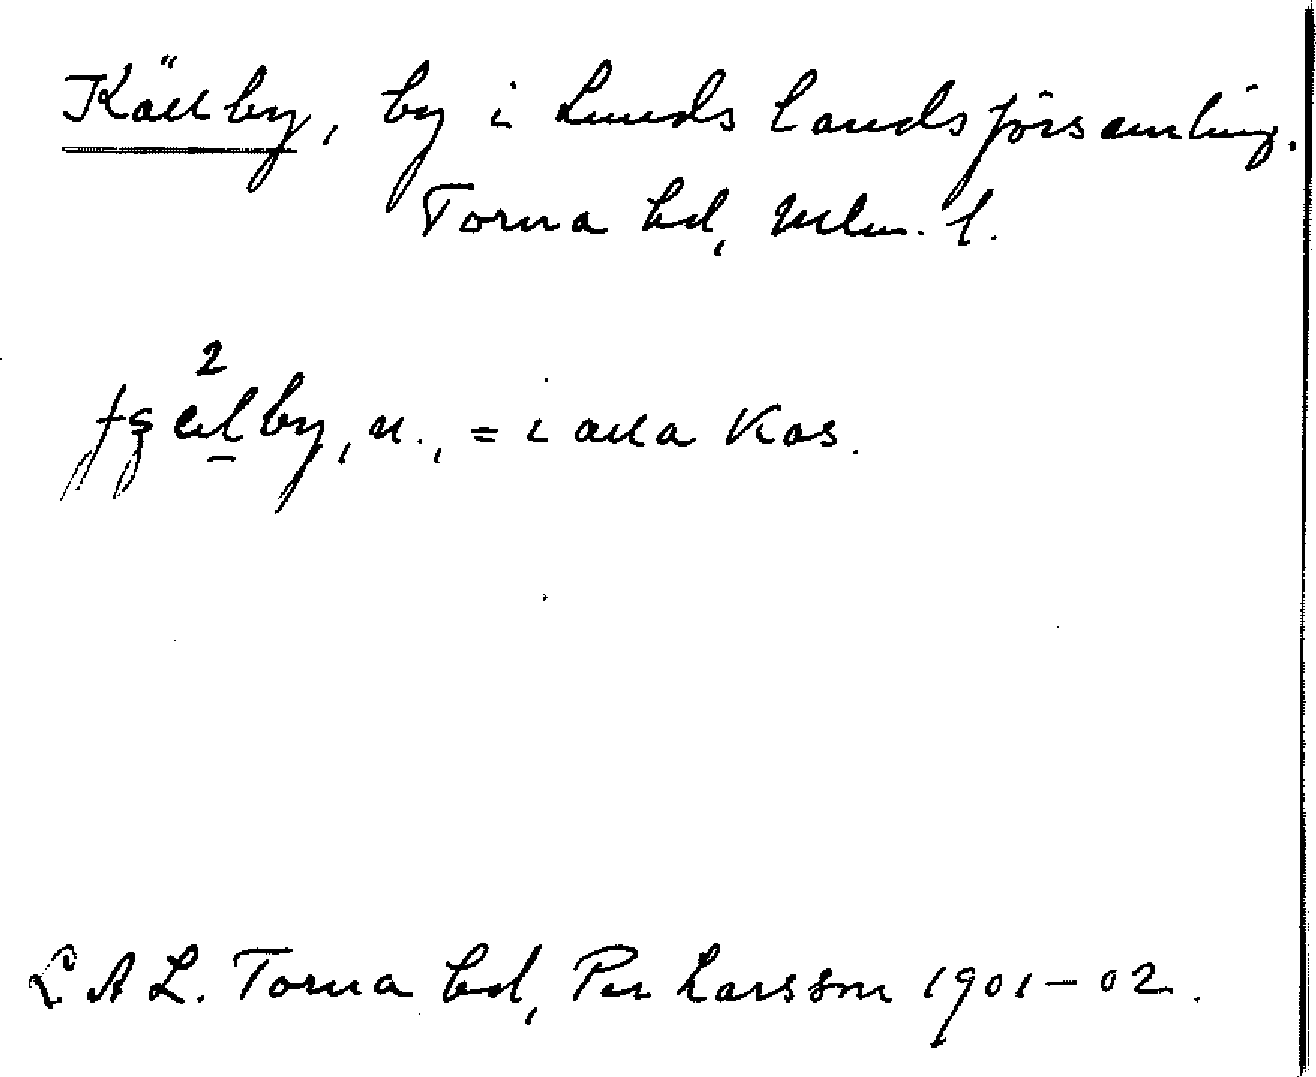 Källby, by i Lunds landsförsamling.
Torna hd, Mlm. l.
2
by, n., = i alla kas.
L A L. Torna hd, Per Larsson 1901–02.